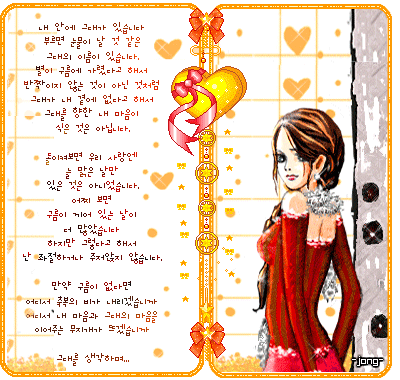 내 안에 그대가 있습니다
부르면 눈물이 날 것 같은
그대의 이름이 있습니다.
별이 구름에 가렸다고 해서
반짝이지 않는 것이 아닌 것처럼
그대가 내 곁에 없다고 해서
그대를 향한 내 마음이
식은 것은 아닙니다.
돌이켜보면 우리 사랑에
늘 맑은 날만
있은 것은 아니었습니다.
어찌 보면
구름이 끼어 있는 날이
더 많았습니다
하지만 그렇다고 해서
난 좌절하거나 주저앉지 않습니다.
만약 구름이 없다면
어디서 축복의 비가 내리겠습니까
어디서 내 마음과 그대의 마음을
이어주는 무지개가 뜨겠습니까
그대를 생각하며...
-jong-